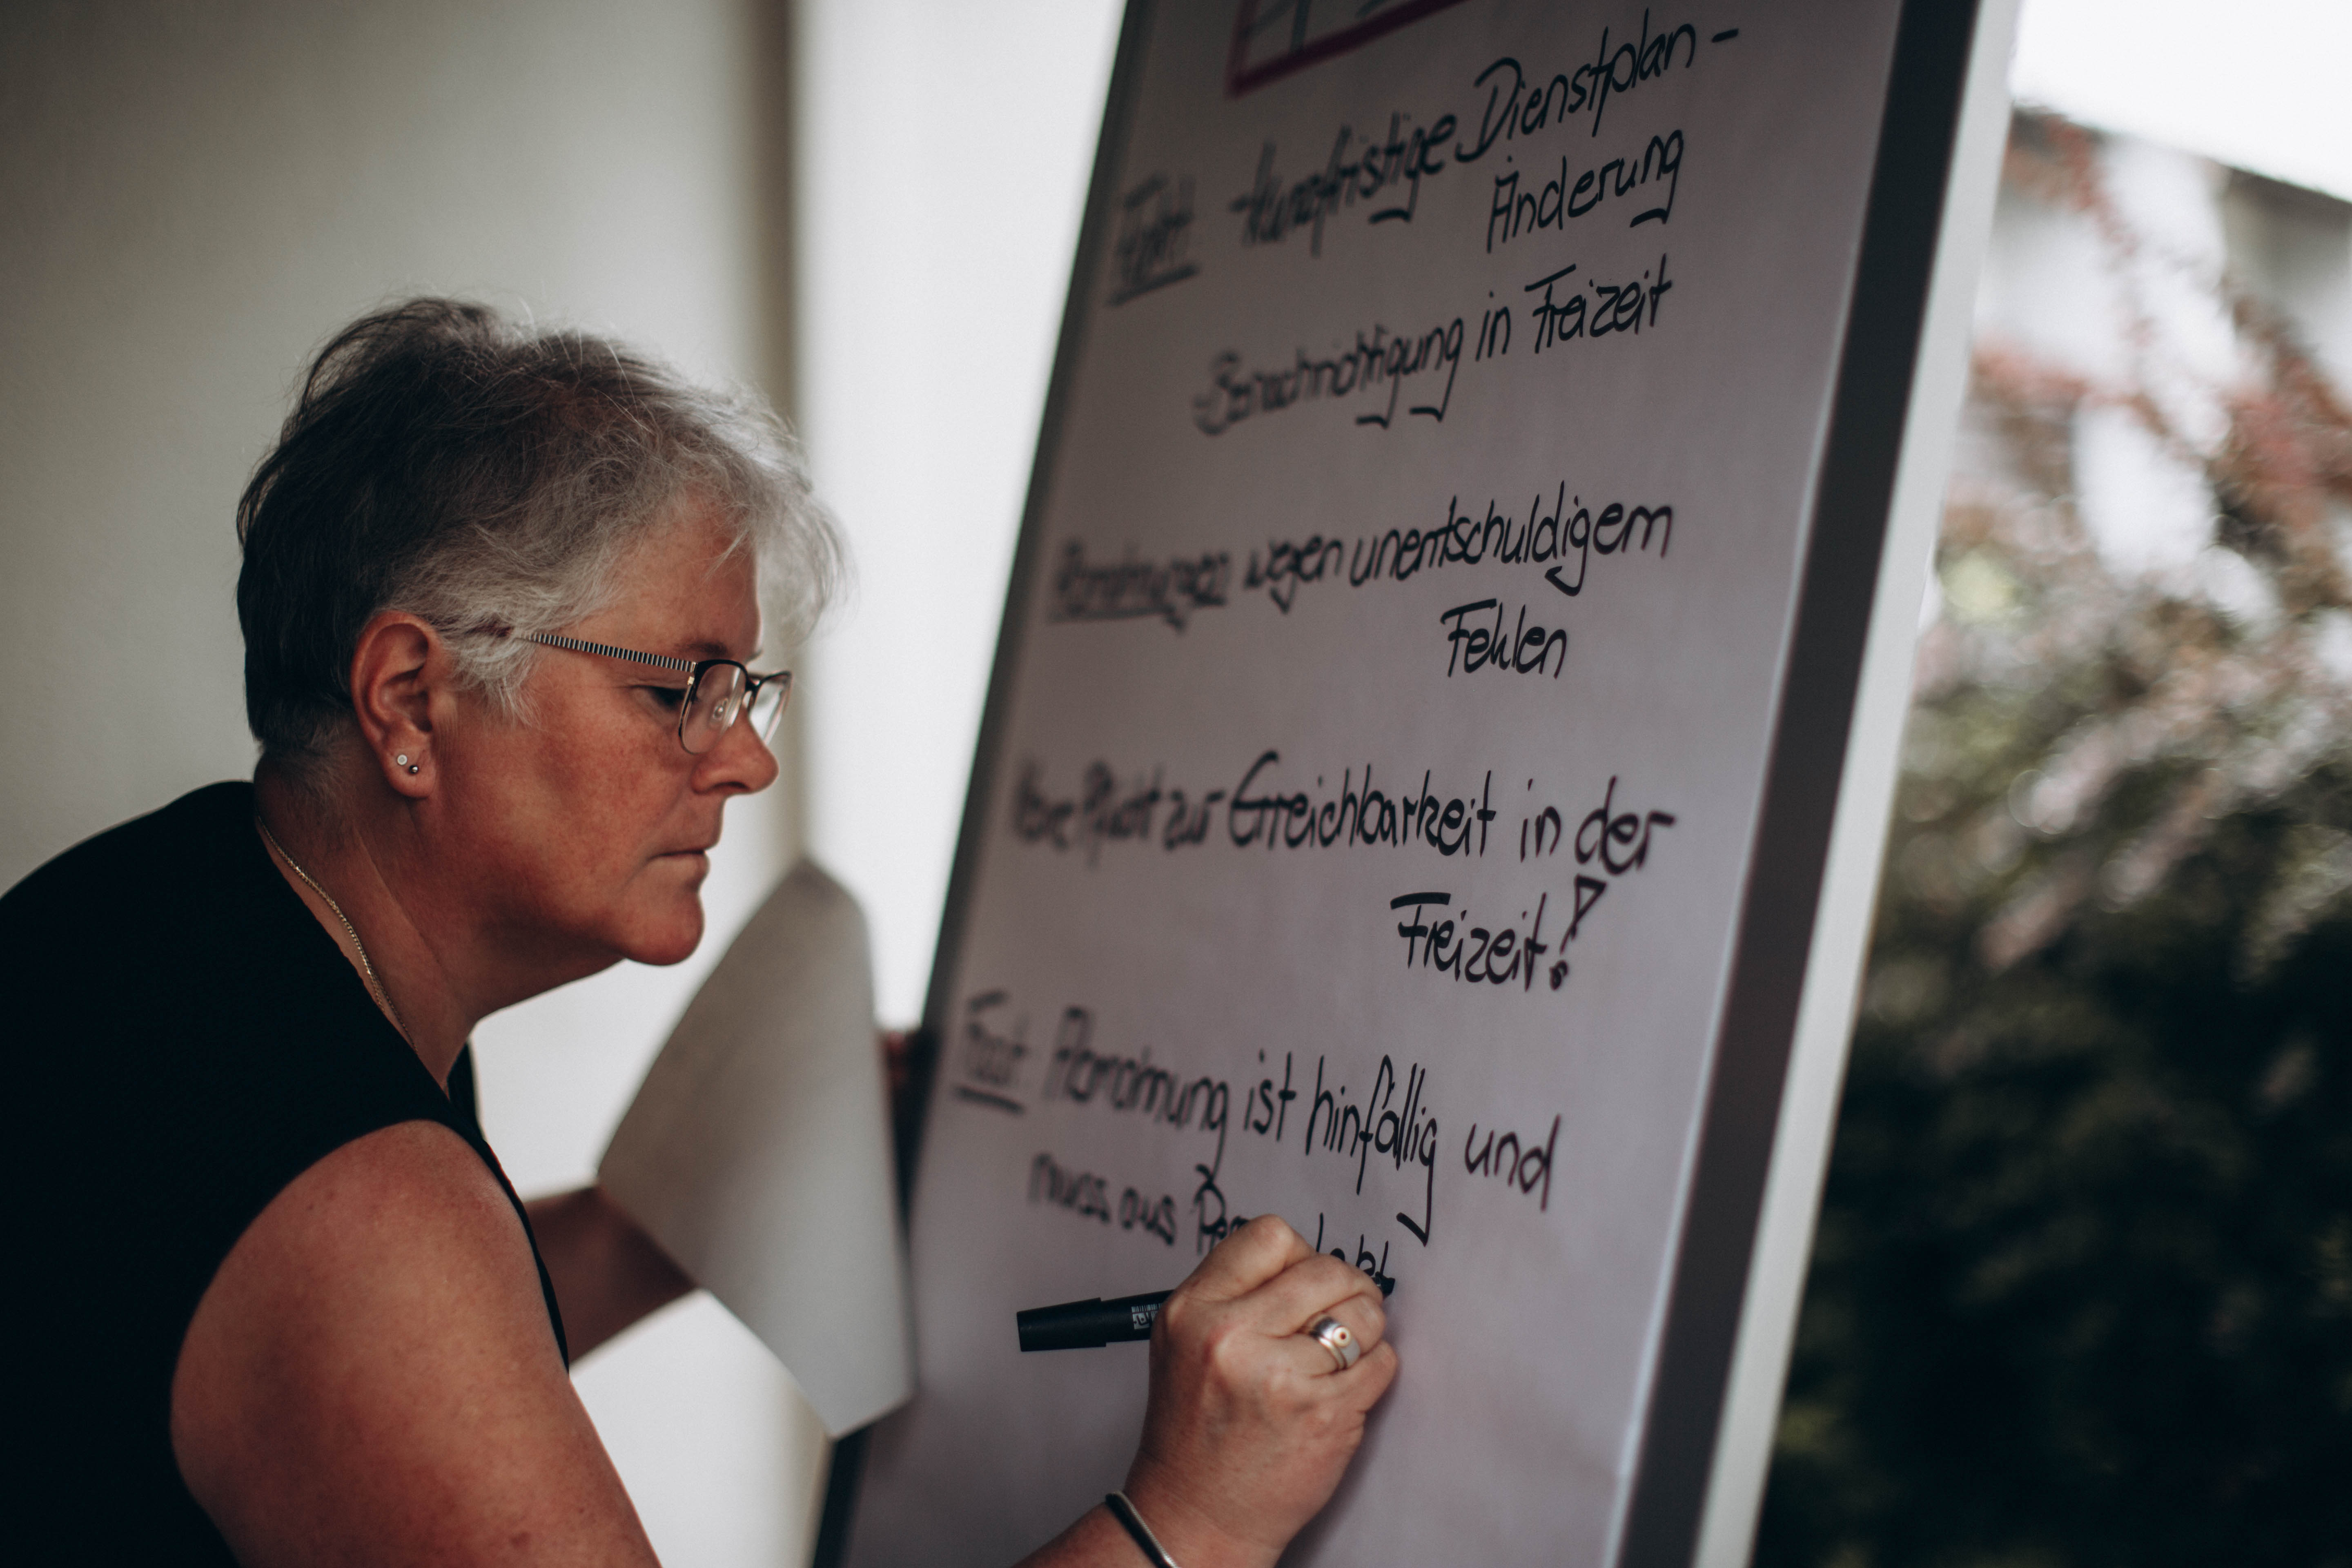 -kurzfristige Dienstplan-
Änderung
-Benachrichtigung in Freizeit
Abmahnungen wegen unentschuldigem
Fehlen
Keine Pflicht zur Erreichbarkeit in der
Freizeit!
Fazit: Abmahnung ist hinfällig und
muss aus